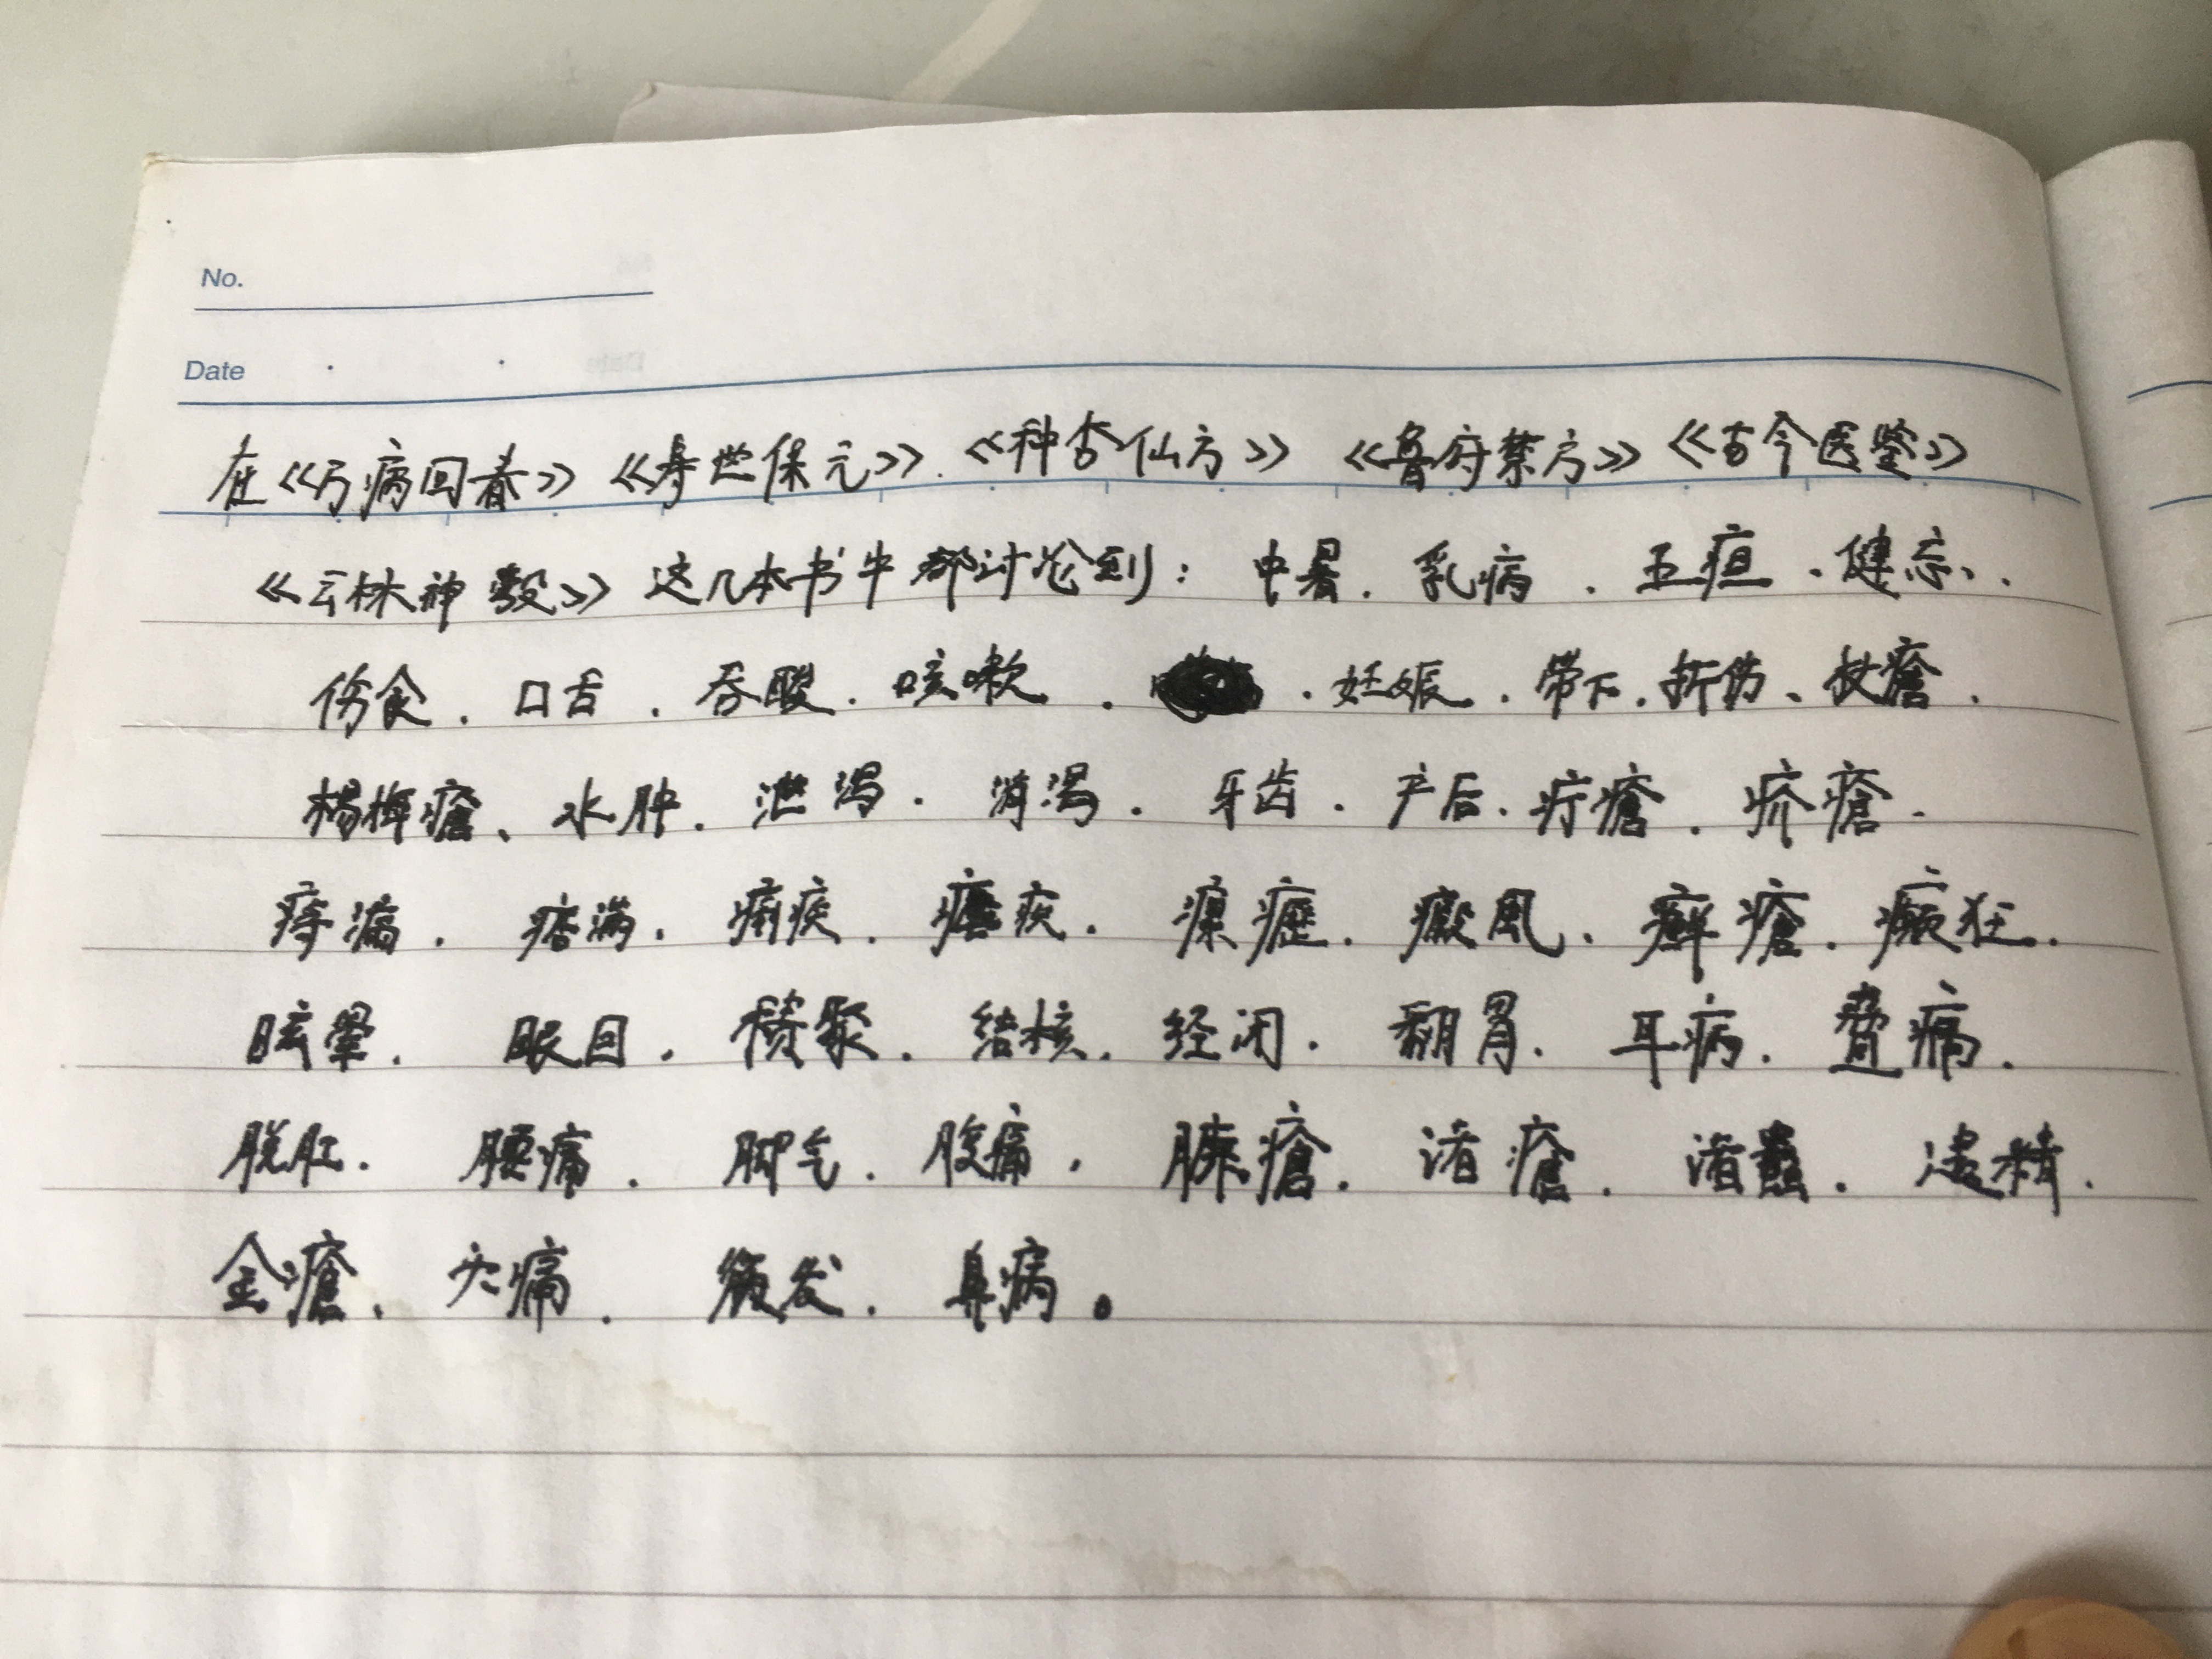 No.
Date
在《万病回春》《寿世保元》.《种杏仙方》《鲁府禁方》《古今医鉴》
《云林神彀》这几本书中都讨论到：中暑．乳病．五疸．健忘、．
伤食．口舌．吞酸．咳嗽．．妊娠．带下．折伤、杖瘡．
杨梅瘡、水肿．泄泻．消渴．牙齿．产后．疔瘡．疥瘡．
痔漏．痞满．痢疾．瘧疾．瘰癧．癜風、癣瘡．癫狂．
眩晕．眼目．積聚．结核．经闭．翻胃．耳病．脅痛．
脱肛．腰痛．脚气．腹痛．臁瘡．诸瘡．诸蟲．遗精．
金瘡、头痛．须发．鼻病。